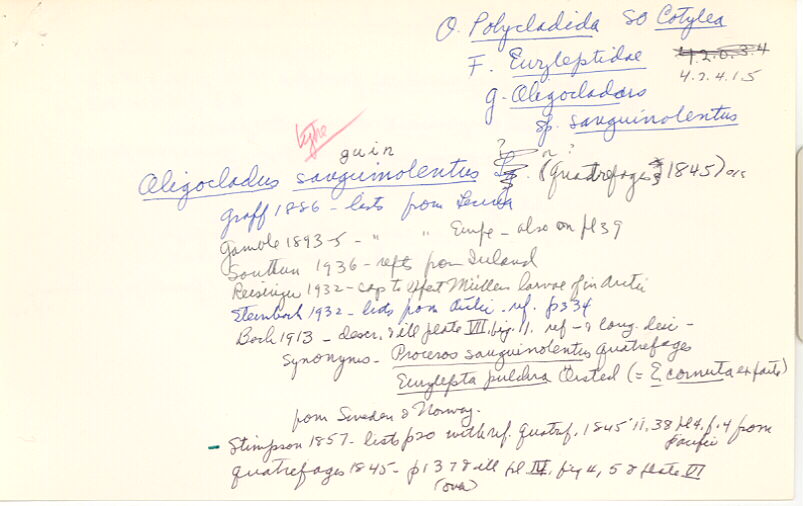 O. Polycladida SO Cotylea
F. Euryleptidae 4.2.0.3.4
4.2.4.1.5
g. Oligocladus
sp. sanguinolentus
Type
guin ? n ?
Oligocladus sanguinolentus (Quatrefages 1845)
Graff 1886 - lists from
Gamble 1893-5 - " " - also on pl 39
Southern 1936 - repts from Ireland
Reisinger 1932 - cap to Müllers larvae of in Arctic
Steinbock 1932 - lists from Arctic. ref. p334
Bock 1913 - descr. & ill plate VII, fig. 11. ref - & cong. desi -
synonyms - Proceros sanguinolentus Quatrefages
Eurylepta pulchra Örsted (= E cornuta ex parte)
from Sweden & Norway.
- Stimpson 1857 - lists p20 with ref. Quatref. 1845 : 11, 38 pl 4, f. 4 from
Pacific
Quatrefages 1845 - p137 & ill pl IV, fig 4, 5 & plate VI
(ova)